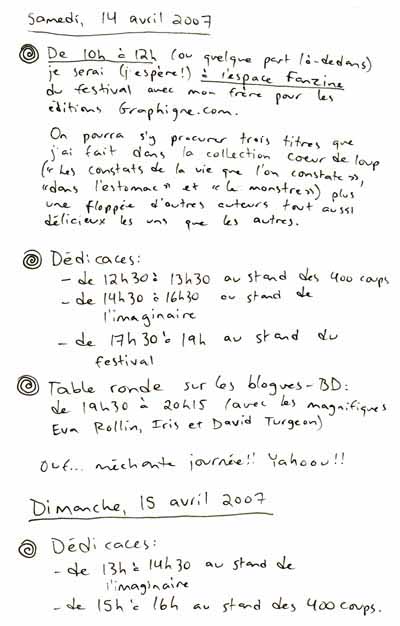 Samedi, 14 avril 2007
De 10h à 12h (ou quelque part là-dedans)
je serai (j'espère!) à l'espace Fanzine
du festival avec mon frère pour les
éditions Graphigne.com.
On pourra s'y procurer trois titres que
j'ai fait dans la collection coeur de loup
(«Les constats de la vie que l'on constate»,
«dans l'estomac» et «le monstre») plus
une floppée d'autres auteurs tout aussi
délicieux les uns que les autres.
Dédicaces:
- de 12h30 à 13h30 au stand des 400 coups
- de 14h30 à 16h30 au stand de
l'imaginaire
- de 17h30 à 19h au stand du
festival
Table ronde sur les blogues-BD:
de 19h30 à 20h15 (avec les magnifiques
Eva Rollin, Iris et David Turgeon)
Ouf... méchante journée!! Yahoou!!
Dimanche, 15 avril 2007
Dédicaces:
- de 13h à 14h30 au stand de
l'imaginaire
- de 15h à 16h au stand des 400 coups.